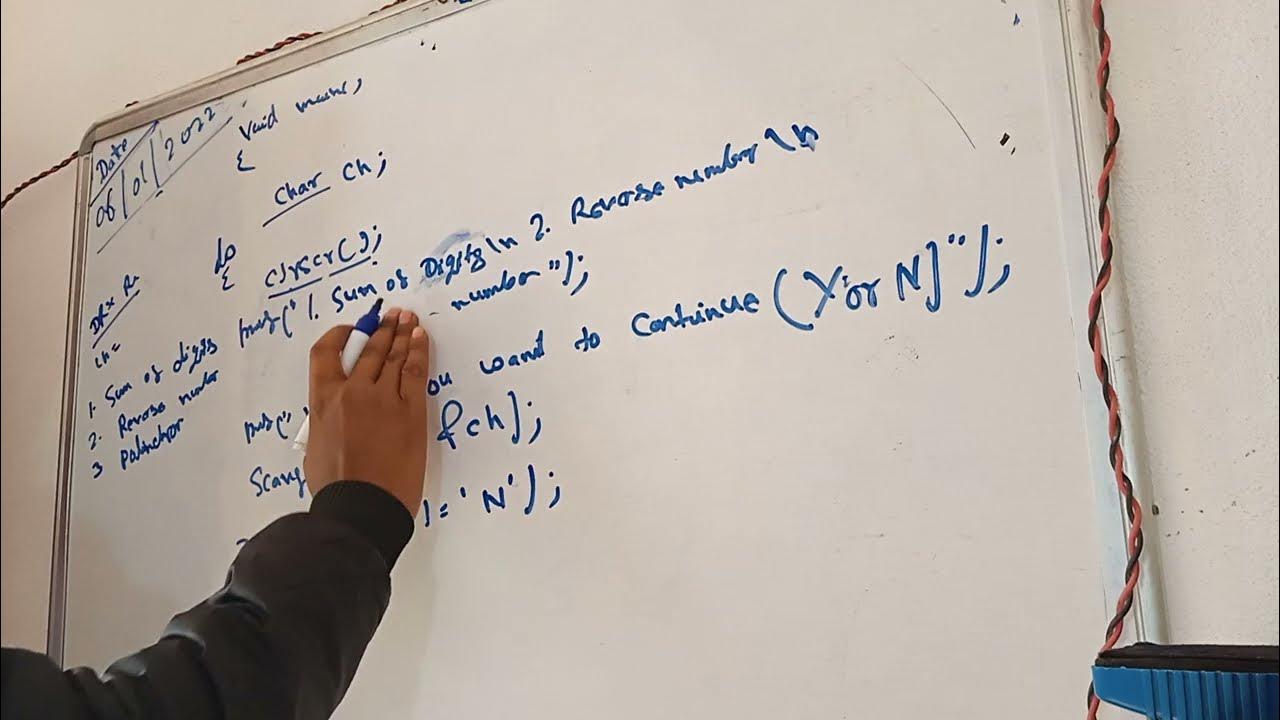 Date
06/01/2022
void main()
{
char ch;
do
{
clrscr();
("1. Sum of Digits \n 2. Reverse number \n
number");
ou want to Continue (Y or N)");
&ch);
!= 'N');
ch=
1. Sum of digits
2. Reverse number
3